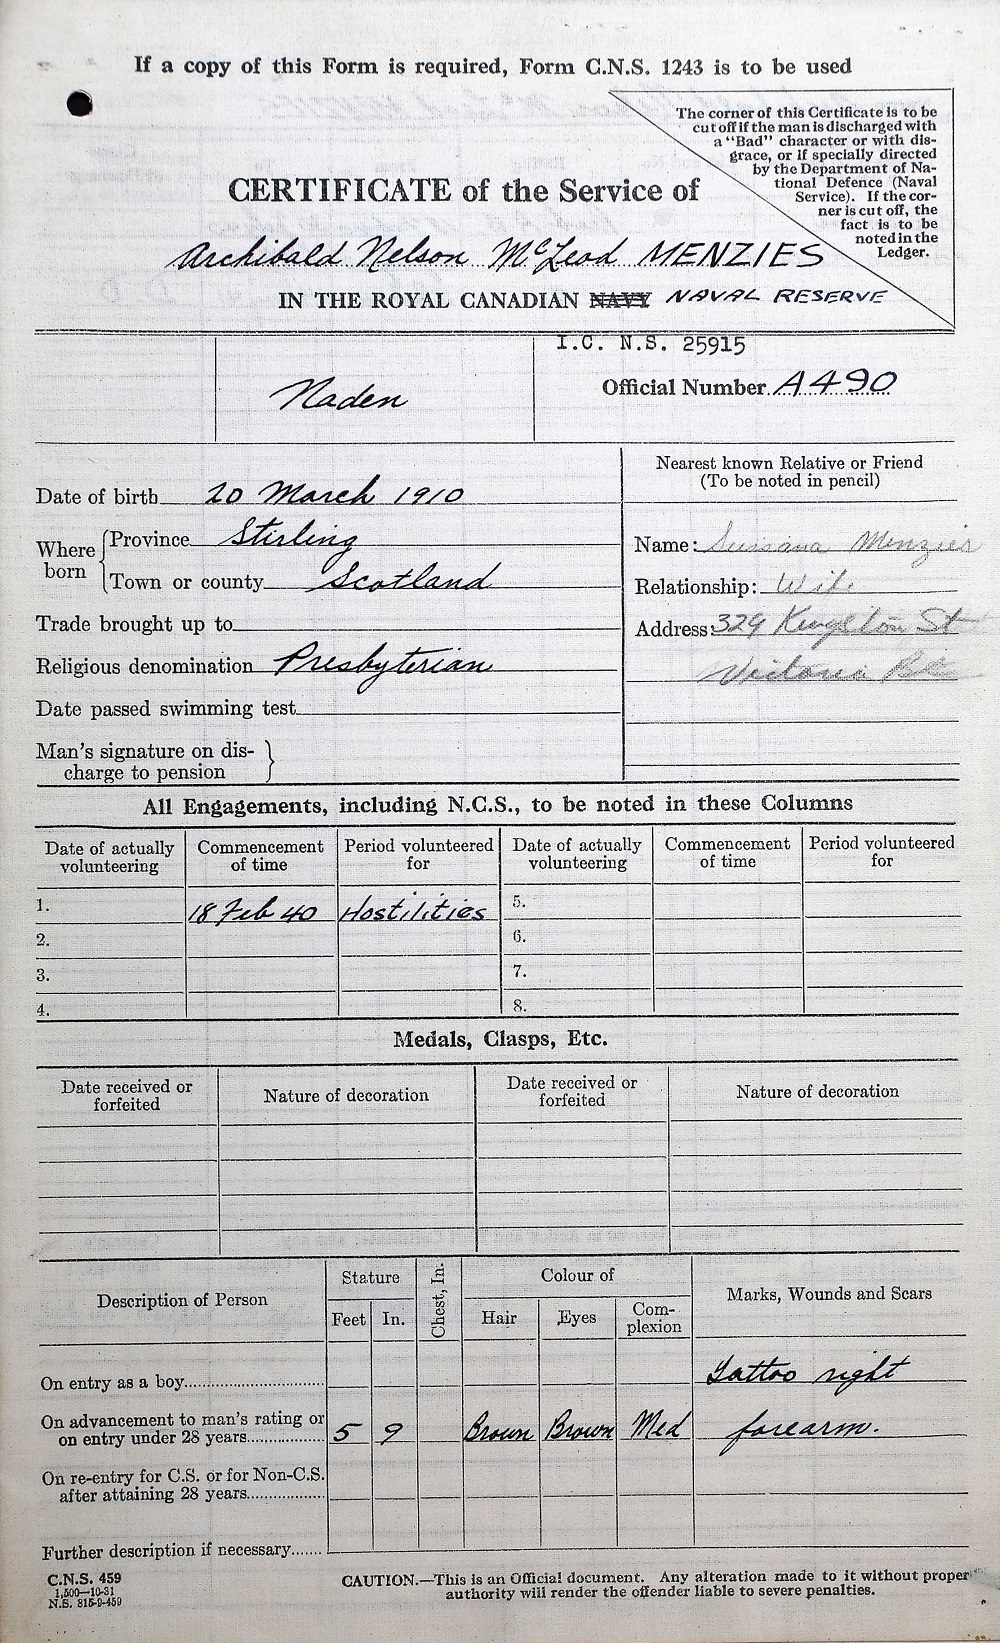 If a copy of this Form is required, Form C.N.S. 1243 is to be used
The corner of this Certificate is to be
cut off if the man is discharged with
a "Bad" character or with dis-
grace, or if specially directed
by the Department of Na-
tional Defence (Naval
Service). If the cor-
ner is cut off, the
fact is to be
noted in the
Ledger.
CERTIFICATE of the Service of
Archibald Nelson McLeod MENZIES
IN THE ROYAL CANADIAN NAVY NAVAL RESERVE
I.C. N.S. 25915
Naden
Official Number A490
Nearest known Relative or Friend
(To be noted in pencil)
Date of birth 20 March 1910
Where born
Province Stirling
Town or county Scotland
Trade brought up to
Religious denomination Presbyterian
Date passed swimming test
Man's signature on dis-
charge to pension
Name: Menzies
Relationship: Wife
Address: 329 St
Victoria
All Engagements, including N.C.S., to be noted in these Columns
Date of actually volunteering Commencement of time Period volunteered for Date of actually volunteering Commencement of time Period volunteered for
1. 18 Feb 40 Hostilities 5.
2. 6.
3. 7.
4. 8.
Medals, Clasps, Etc.
Date received or forfeited Nature of decoration Date received or forfeited Nature of decoration
Description of Person Stature Chest, In. Colour of Marks, Wounds and Scars
Feet In. Hair Eyes Com-
plexion
On entry as a boy Tattoo right
On advancement to man's rating or
on entry under 28 years 5 9 Brown Brown Med forearm.
On re-entry for C.S. or for Non-C.S.
after attaining 28 years
Further description if necessary
C.N.S. 459
1,500—10-31
N.S. 815-9-459
CAUTION.—This is an Official document. Any alteration made to it without proper
authority will render the offender liable to severe penalties.